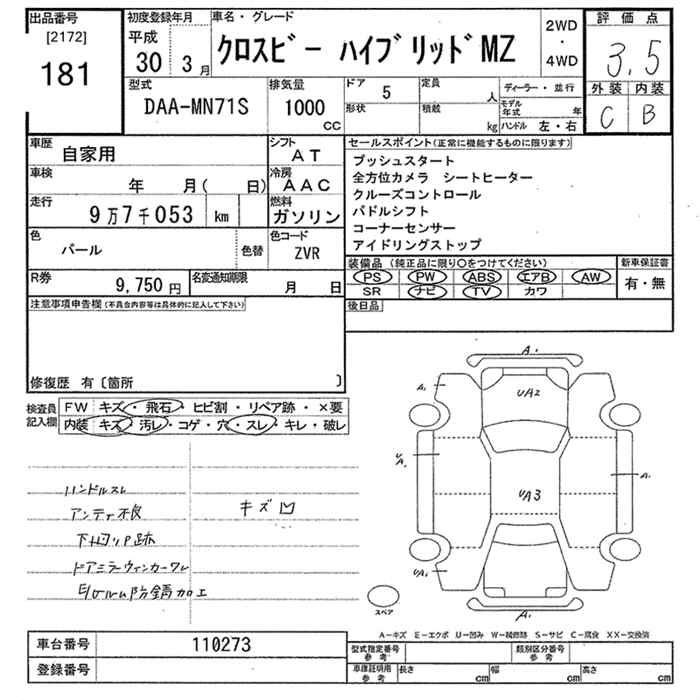 出品番号
[2172]
181
初度登録年月
平成
30 3月
車名・グレード
クロスビー ハイブリッドMZ
2WD
・
4WD
評価点
3.5
外装 内装
C B
型式
DAA-MN71S
排気量
1000
cc
ドア 5
形状
定員
人
積載
kg
ディーラー・並行
モデル年式 年
ハンドル 左・右
車歴
自家用
シフト
AT
車検
年 月( 日)
冷房
AAC
走行
9万7千053 km
燃料
ガソリン
色
パール
色替
色コード
ZVR
R券
9,750円
名変通知期限
月 日
セールスポイント(正常に機能するものに限ります)
プッシュスタート
全方位カメラ シートヒーター
クルーズコントロール
パドルシフト
コーナーセンサー
アイドリングストップ
装備品(純正品に限り○をつけてください)
PS PW ABS エアB AW
SR ナビ TV カワ
新車保証書
有・無
後日品
注意事項申告欄(不具合内容等は具体的に記入して下さい)
修復歴 有〔箇所 〕
検査員
記入欄
FW キズ・飛石・ヒビ割・リペア跡・×要
内装 キズ・汚レ・コゲ・穴・スレ・キレ・破レ
ハンドルスレ
アンテナ不良
下回りP跡
ドアミラーウィンカーワレ
防錆加工
キズ凹
A
A
UA2
UA
A
UA3
UA
A
スペア
A-キズ E-エクボ U-凹み W-補修跡 S-サビ C-腐食 XX-交換済
車台番号
110273
登録番号
型式指定番号
参考
類別区分番号
参考
車庫証明用
参考
長さ cm
幅 cm
高さ cm